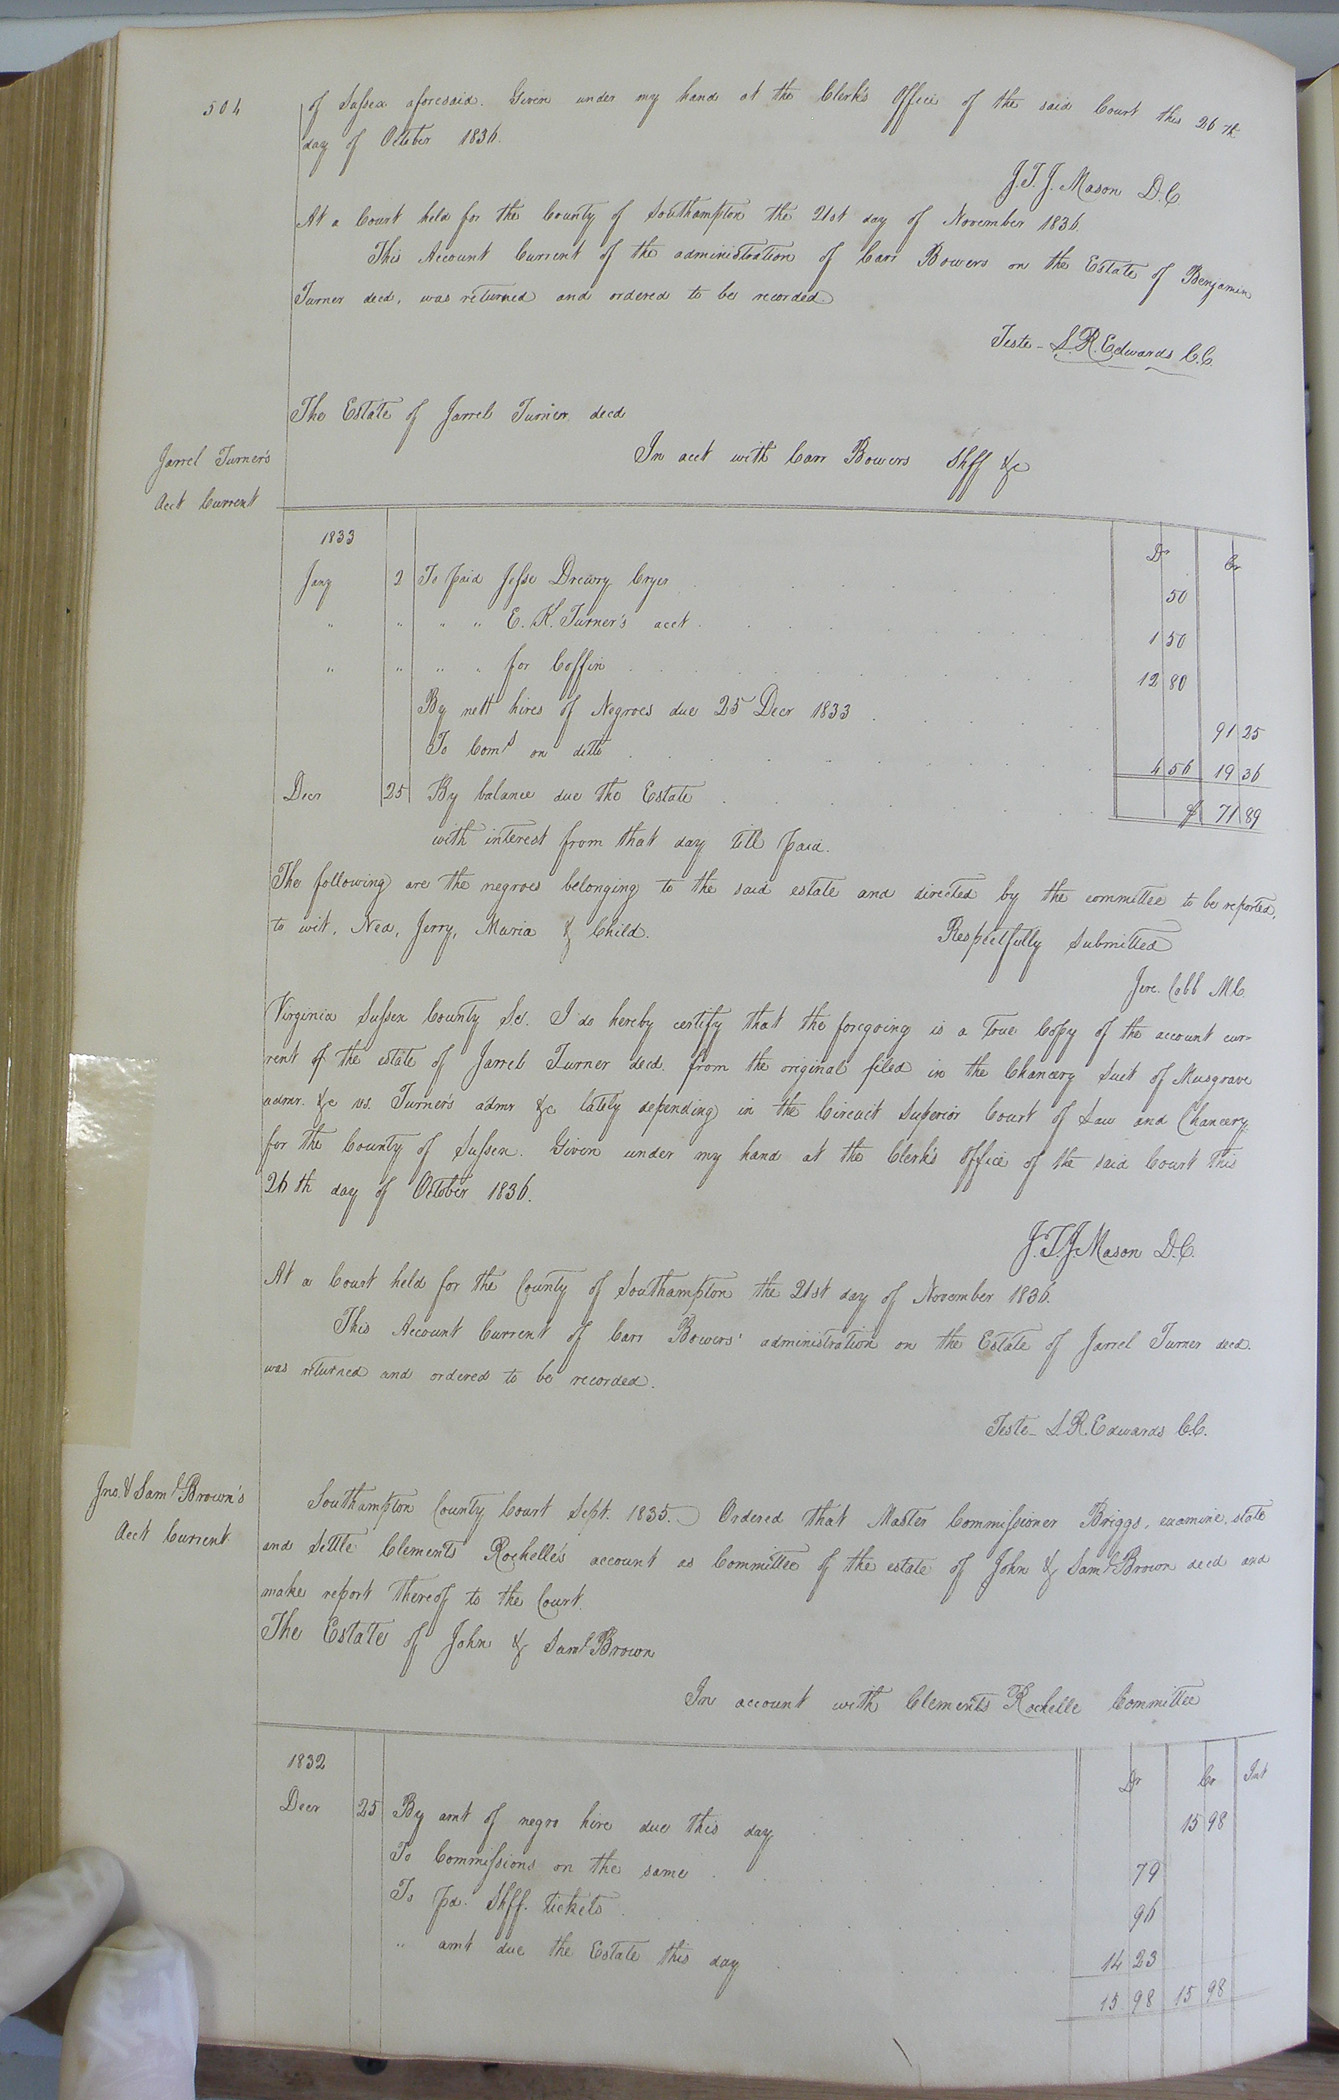 504
of Sussex aforesaid. Given under my hand at the Clerk's Office of the said Court this 26th
day of October 1836.
J. T. J. Mason D.C.
At a Court held for the County of Southampton the 21st day of November 1836.
This Account Current of the administration of Carr Bowers on the Estate of Benjamin
Turner decd. was returned and ordered to be recorded.
Teste - L. R. Edwards C.C.
The Estate of Jarrel Turner decd
In acct with Carr Bowers Shff &c
Jarrel Turner's
Acct Current
1833 Dr Cr
Jany 2 To paid Jesse Drewry Cryer 50
" " " " E. K. Turner's acct. 1 50
" " " " for Coffin 12 80
By nett hires of Negroes due 25 Decr 1833 91 25
To Coms on ditto 4 56 19 36
Decr 25 By balance due the Estate $ 71 89
with interest from that day till paid.
The following are the negroes belonging to the said estate and directed by the committee to be reported,
to wit, Ned, Jerry, Maria & Child. Respectfully Submitted
Jere. Cobb M.C.
Virginia Sussex County Sct. I do hereby certify that the foregoing is a true Copy of the account cur-
rent of the estate of Jarrel Turner decd. from the original filed in the Chancery Suit of Musgrave
admr. &c vs. Turner's admr &c lately depending in the Circuit Superior Court of Law and Chancery
for the County of Sussex. Given under my hand at the Clerk's office of the said Court this
26th day of October 1836.
J. T. J. Mason D.C.
At a Court held for the County of Southampton the 21st day of November 1836.
This Account Current of Carr Bowers' administration on the Estate of Jarrel Turner decd.
was returned and ordered to be recorded.
Teste - L. R. Edwards C.C.
Jno. & Saml Brown's
Acct Current
Southampton County Court Sept. 1835. Ordered that Master Commissioner Briggs, examine, state
and settle Clements Rochelle's account as Committee of the estate of John & Saml Brown decd and
make report thereof to the Court.
The Estate of John & Saml Brown
In account with Clements Rochelle Committee
1832 Dr Cr Int
Decr 25 By amt of negro hire due this day 15 98
To Commissions on the same 79
To pd. Shff. tickets 96
" amt due the Estate this day 14 23
15 98 15 98